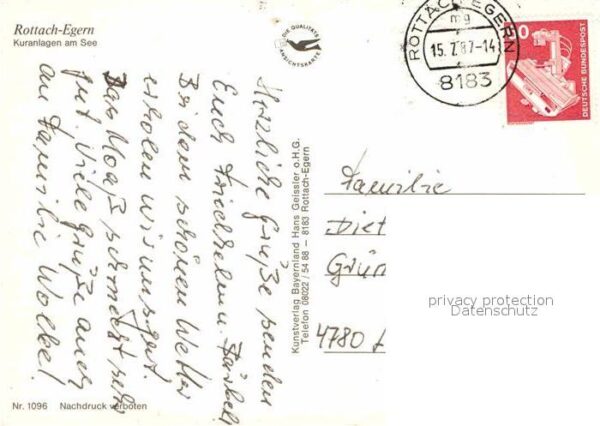 Rottach-Egern
Kuranlagen am See
DIE QUALITÄTS
ANSICHTSKARTE
ROTTACH-EGERN
mg
15.7.87-14
8183
0
DEUTSCHE BUNDESPOST
Herzliche Grüße senden
Euch Friedhelm. Bärbel
Bei dem schönen Wetter
erholen wir uns gut.
Das Maaß schmeckt sehr
gut. Viele Grüße auch
an Familie Wolke!
Kunstverlag Bayernland Hans Geissler o.H.G.
Telefon 08022 / 54 88 – 8183 Rottach-Egern
Familie
Diet
Grün
4780
privacy protection
Datenschutz
Nr. 1096 Nachdruck verboten